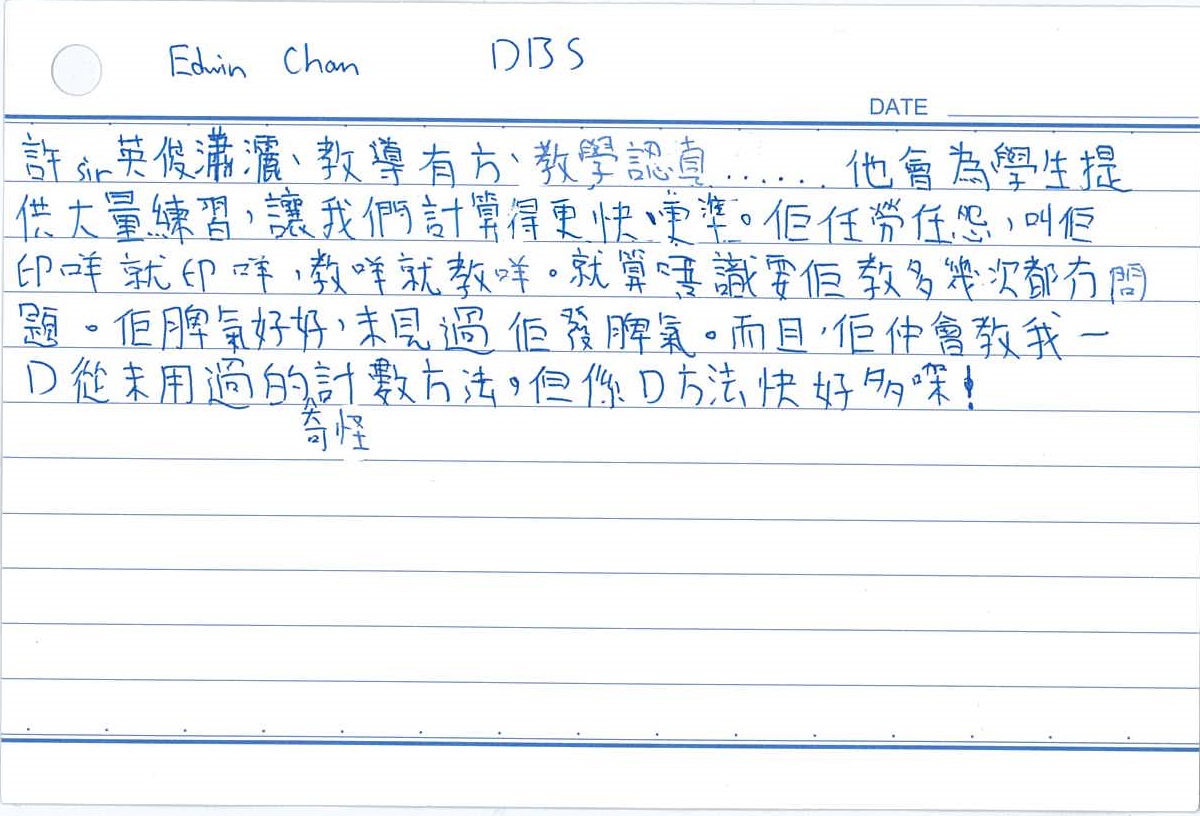 Edwin Chan DBS
DATE
許sir英俊瀟灑、教導有方、教學認真...... 他會為學生提
供大量練習，讓我們計算得更快、更準。佢任勞任怨，叫佢
印咩就印咩，教咩就教咩。就算唔識要佢教多幾次都冇問
題。佢脾氣好好，未見過佢發脾氣。而且，佢仲會教我一
D從未用過的計數方法，但係D方法快好多㗎！
奇怪